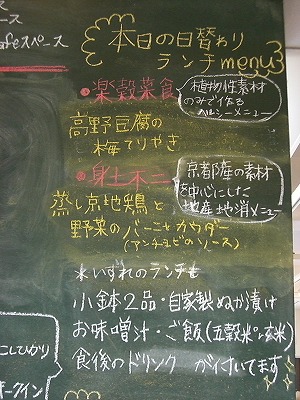 ース
afeスペース
本日の日替わり
ランチmenu
●楽穀菜食
植物性素材
のみで作る
ヘルシーメニュー
高野豆腐の
梅てりやき
●身土不二
京都産の素材
を中心にした
地産地消メニュー
蒸し京地鶏と
野菜のバーニャカウダー
(アンチョビのソース)
※いずれのランチも
小鉢2品・自家製ぬか漬け
お味噌汁・ご飯(五穀米or玄米)
食後のドリンク が付いてます
こしひかり
オークイン